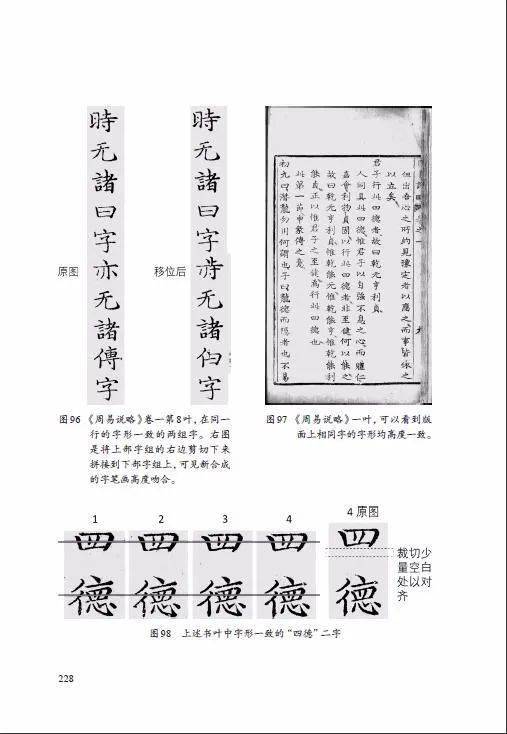 時无諸曰字亦无諸傳字
原图
時无諸曰字
无諸
字
移位后
以立矣
君子行此四德者故曰乾元亨利貞
人同具此四德惟君子以自強不息之心而體仁
嘉會利物貞固以行此四德者非至健何以能之
故曰乾元亨利貞惟乾能元惟乾能亨惟乾能利
能貞正以惟君子之至健為行此四德也
此第一節申彖傳之意
初九曰潛龍勿用何謂也子曰龍德而隱者也不易
图96 《周易说略》卷一第8叶，在同一
行的字形一致的两组字。右图
是将上部字组的右边剪切下来
拼接到下部字组上，可见新合成
的字笔画高度吻合。
图97 《周易说略》一叶，可以看到版
面上相同字的字形均高度一致。
1 2 3 4 4 原图
四 四 四 四 四
德 德 德 德 德
裁切少
量空白
处以对
齐
图98 上述书叶中字形一致的“四德”二字
228